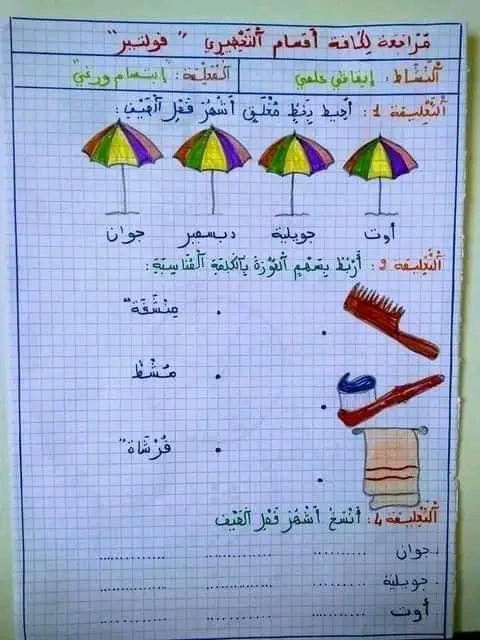 مُرَاجَعَة لِكَافَة أَقْسَام اَلتَّحْضِيرِي " فولتير"
اَلنَّشَاط: إيقاظي علمي
اَلْمُعَلِّمَة: "إبتسام ورغي"
اَلتَّعْلِيمَة 1: أُحِيط بِخَطٍ مُغْلَقٍ أَشْهُرَ فَصْلِ اَلصَّيْفِ:
أوت
جويلية
ديسمبر
جوان
اَلتَّعْلِيمَة 2: أَرْبُطُ بِسَهْمٍ اَلصُّورَةَ بِالكَلِمَةِ اَلْمُنَاسِبَةِ:
مِنْشَفَةٌ
مُشْطٌ
فُرْشَاةٌ
اَلتَّعْلِيمَة 4: أَنْسَخُ أَشْهُرَ فَصْلِ اَلصَّيْف
. جوان ........... ............. .............
. جويلية ........... ............. .............
. أوت ........... ............. .............